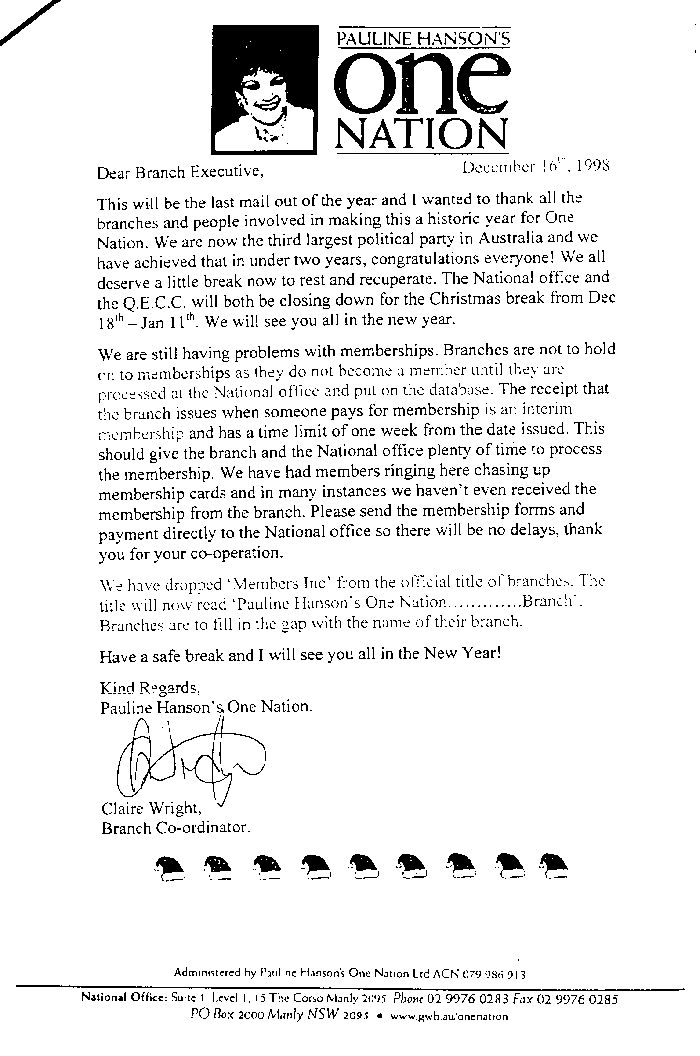 PAULINE HANSON'S
one
NATION
December 16th, 1998
Dear Branch Executive,
This will be the last mail out of the year and I wanted to thank all the
branches and people involved in making this a historic year for One
Nation. We are now the third largest political party in Australia and we
have achieved that in under two years, congratulations everyone! We all
deserve a little break now to rest and recuperate. The National office and
the Q.E.C.C. will both be closing down for the Christmas break from Dec
18th – Jan 11th. We will see you all in the new year.
We are still having problems with memberships. Branches are not to hold
on to memberships as they do not become a member until they are
processed at the National office and put on the database. The receipt that
the branch issues when someone pays for membership is an interim
membership and has a time limit of one week from the date issued. This
should give the branch and the National office plenty of time to process
the membership. We have had members ringing here chasing up
membership cards and in many instances we haven't even received the
membership from the branch. Please send the membership forms and
payment directly to the National office so there will be no delays, thank
you for your co-operation.
We have dropped 'Members Inc' from the official title of branches. The
title will now read 'Pauline Hanson's One Nation............Branch'.
Branches are to fill in the gap with the name of their branch.
Have a safe break and I will see you all in the New Year!
Kind Regards,
Pauline Hanson's One Nation.
Claire Wright,
Branch Co-ordinator.
Administered by Pauline Hanson's One Nation Ltd ACN 079 986 913
National Office: Suite 1 Level 1, 15 The Corso Manly 2095 Phone 02 9976 0283 Fax 02 9976 0285
PO Box 2000 Manly NSW 2095 • www.gwb.au/onenation